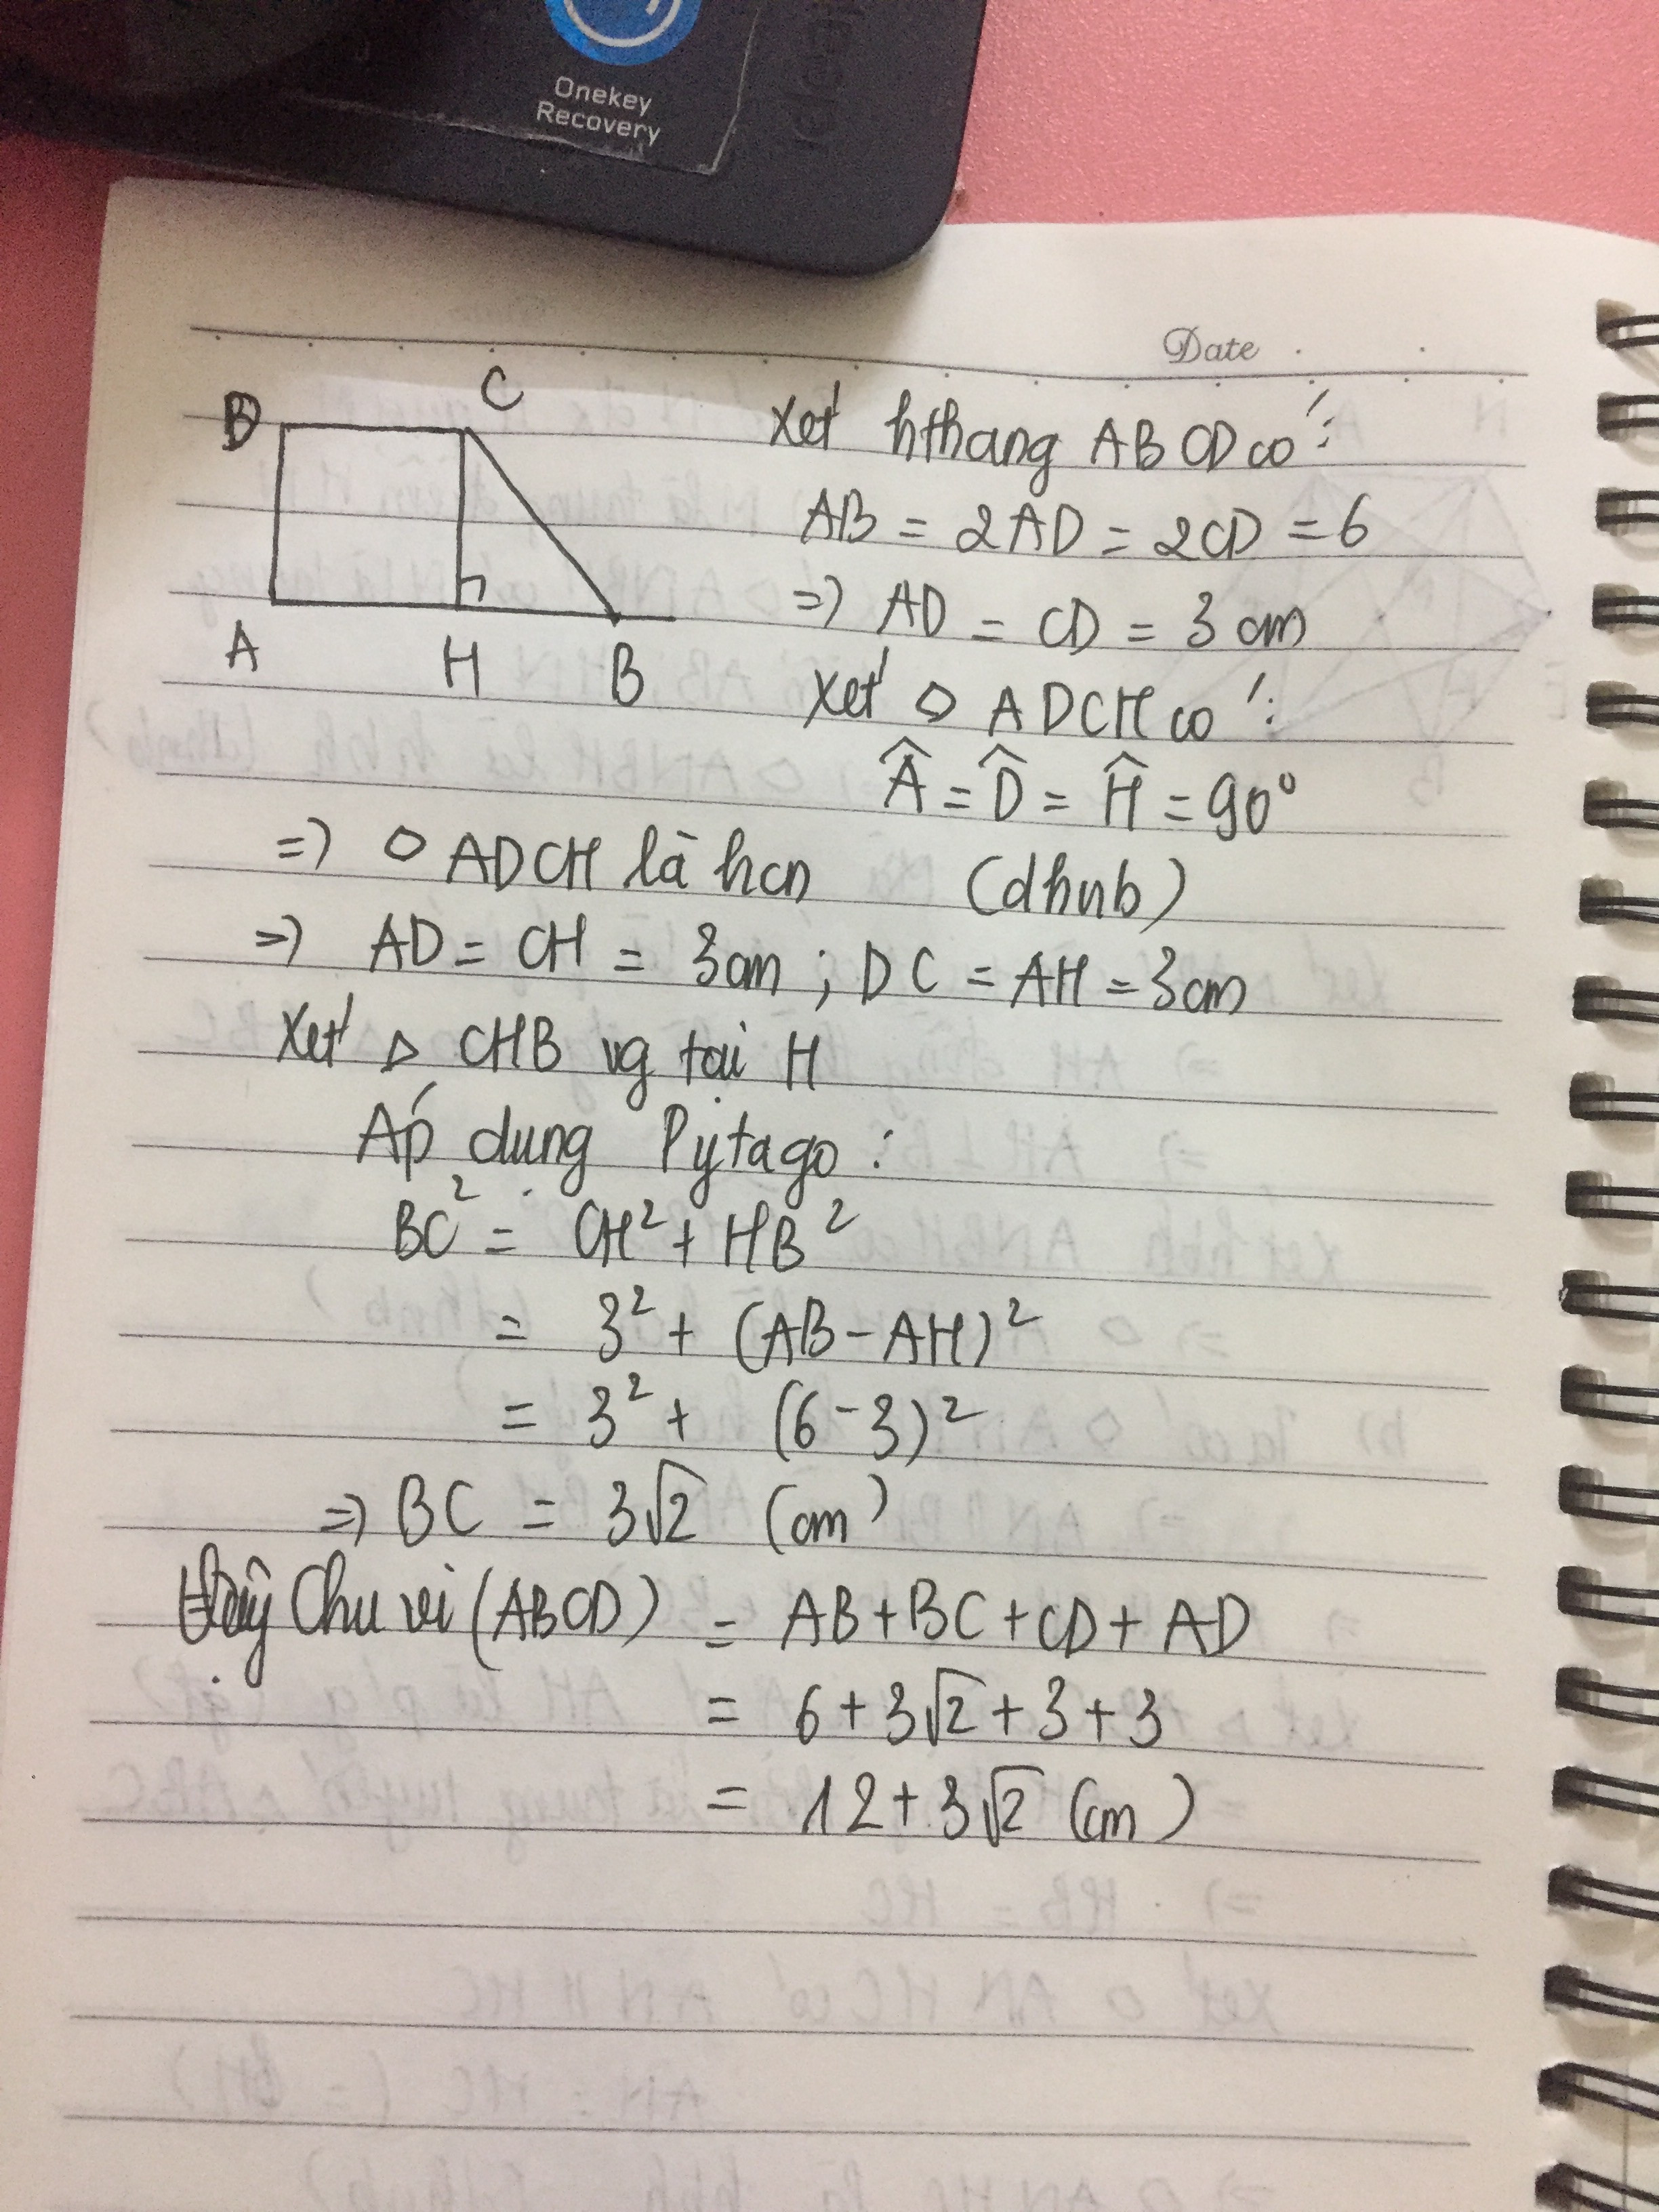 Onekey
Recovery
Date
D
C
A
H
B
Xét hthang ABCD có:
AB = 2AD = 2CD = 6
=> AD = CD = 3 cm
Xét ◇ ADCH có:
Â = D̂ = Ĥ = 90°
=> ◇ ADCH là hcn (dhnb)
=> AD = CH = 3cm ; DC = AH = 3cm
Xét △ CHB vg tại H
Áp dụng Pytago :
BC² = CH² + HB²
= 3² + (AB - AH)²
= 3² + (6 - 3)²
=> BC = 3√2 (cm)
Vậy Chu vi (ABCD) = AB + BC + CD + AD
= 6 + 3√2 + 3 + 3
= 12 + 3√2 (cm)